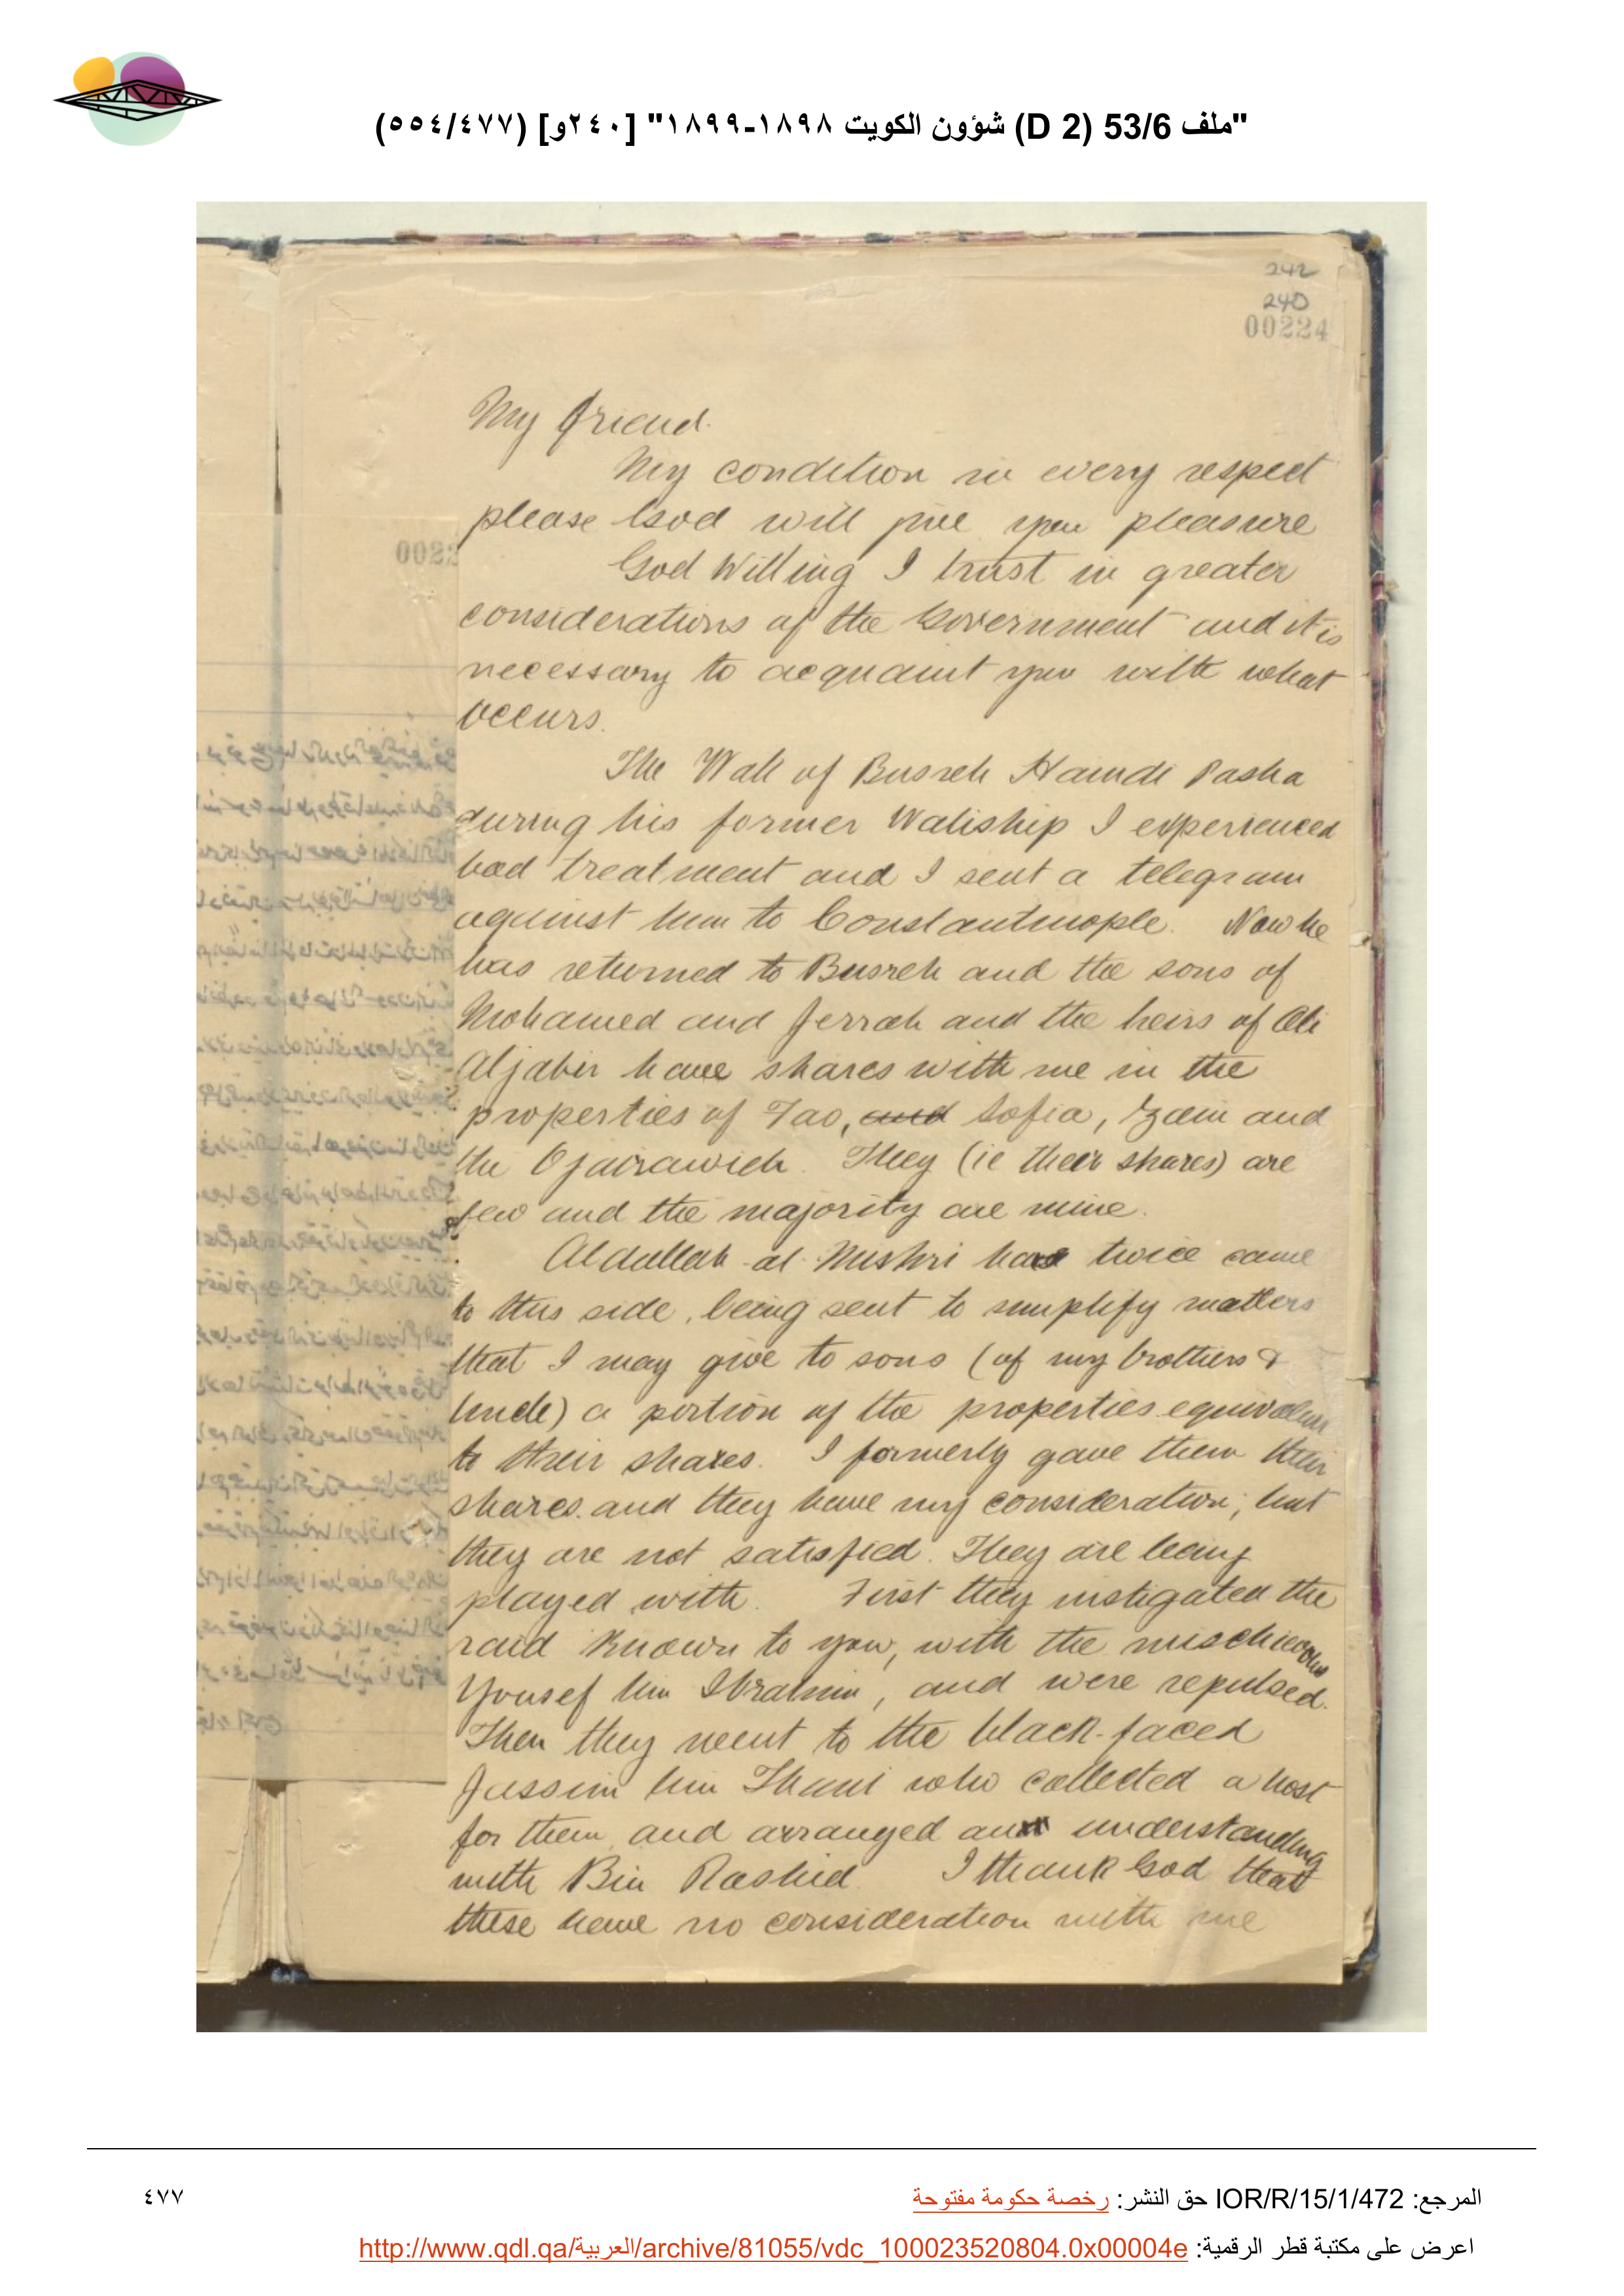 "ملف 53/6 (D 2) شؤون الكويت ١٨٩٨-١٨٩٩" [٢٤٠و] (٥٥٤/٤٧٧)
242
240
00224
My friend.
My condition in every respect
please God will give you pleasure
God Willing I trust in greater
considerations of the Government and it is
necessary to acquaint you with what
occurs.
The Wali of Busreh Hamdi Pasha
during his former Waliship I experienced
bad treatment and I sent a telegram
against him to Constantinople. Now he
has returned to Busreh and the sons of
Mohamed and Jerrah and the heirs of Ali
Aljabir have shares with me in the
properties of Fao, and Sofia, and
the They (ie their shares) are
few and the majority are mine.
Abdullah al Mishri has twice came
to this side, being sent to simplify matters
that I may give to sons (of my brothers &
Uncle) a portion of the properties equivalent
to their shares. I formerly gave them their
shares. and they have my consideration; but
they are not satisfied. They are being
played with. First they instigated the
raid known to you, with the mischievous
Yousef bin Ibrahim, and were repulsed.
Then they went to the black-faced
Jassim bin Thani who collected a host
for them and arranged an understanding
with Bin Rashid. I thank God that
these have no consideration with me
المرجع: IOR/R/15/1/472 حق النشر: رخصة حكومة مفتوحة
٤٧٧
اعرض على مكتبة قطر الرقمية: http://www.qdl.qa/العربية/archive/81055/vdc_100023520804.0x00004e